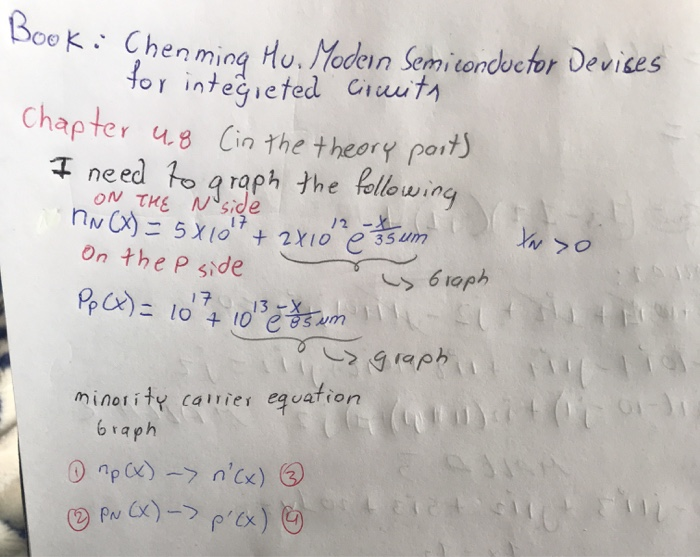 Book: Chenming Hu. Modern Semiconductor Devises
for integreted Circuits
Chapter 4.8 (in the theory part)
I need to graph the following
ON THE N side
nN(x) = 5x10^17 + 2x10^12 e^(-x/35um) xN > 0
↳ Graph
On the P side
Pp(x) = 10^17 + 10^13 e^(-x/85um)
↳ graph
minority carrier equation
Graph
① np(x) -> n'(x) ③
② PN(x) -> p'(x) ④